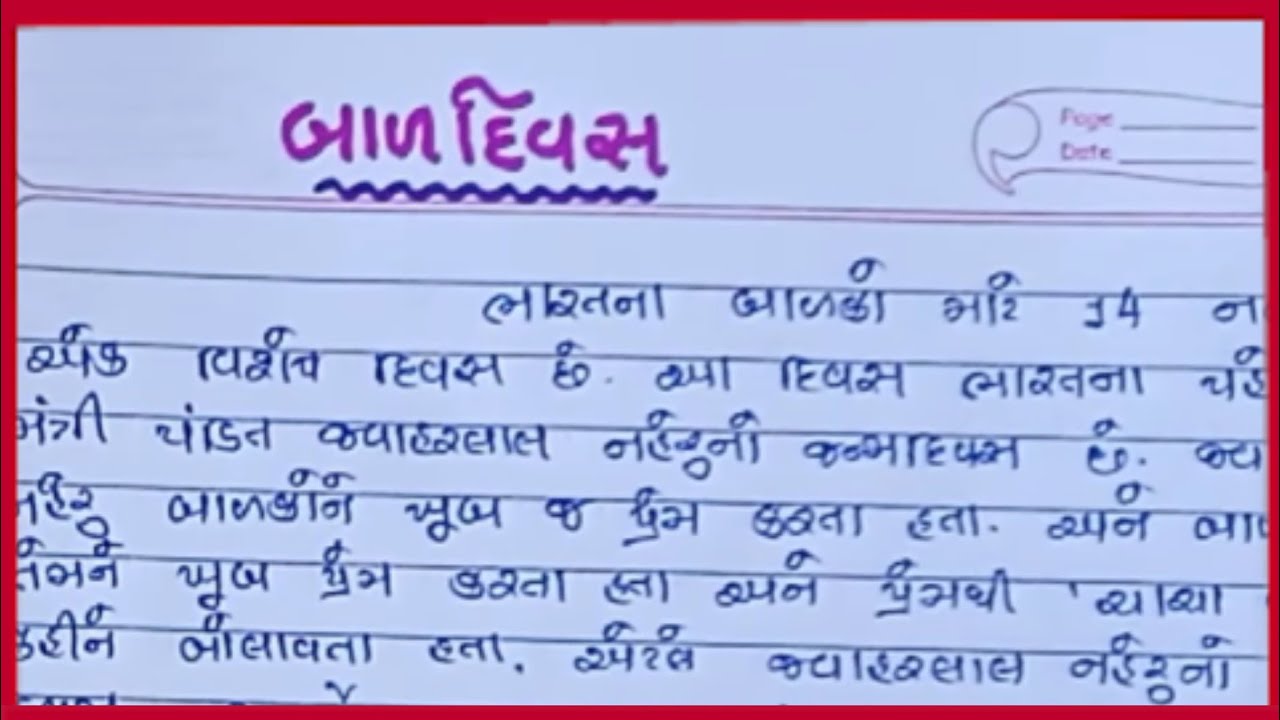 બાળદિવસ
Page
Date
ભારતના બાળકો માટે 14
એક વિશેષ દિવસ છે. આ દિવસ ભારતના
મંત્રી પંડિત જવાહરલાલ નહેરુનો જન્મદિવસ છે.
નહેરુ બાળકોને ખૂબ જ પ્રેમ કરતા હતા. અને
તેમને ખૂબ પ્રેમ કરતા હતા અને પ્રેમથી 'ચાચા
કહીને બોલાવતા હતા. એટલે જવાહરલાલ નહેરુનો